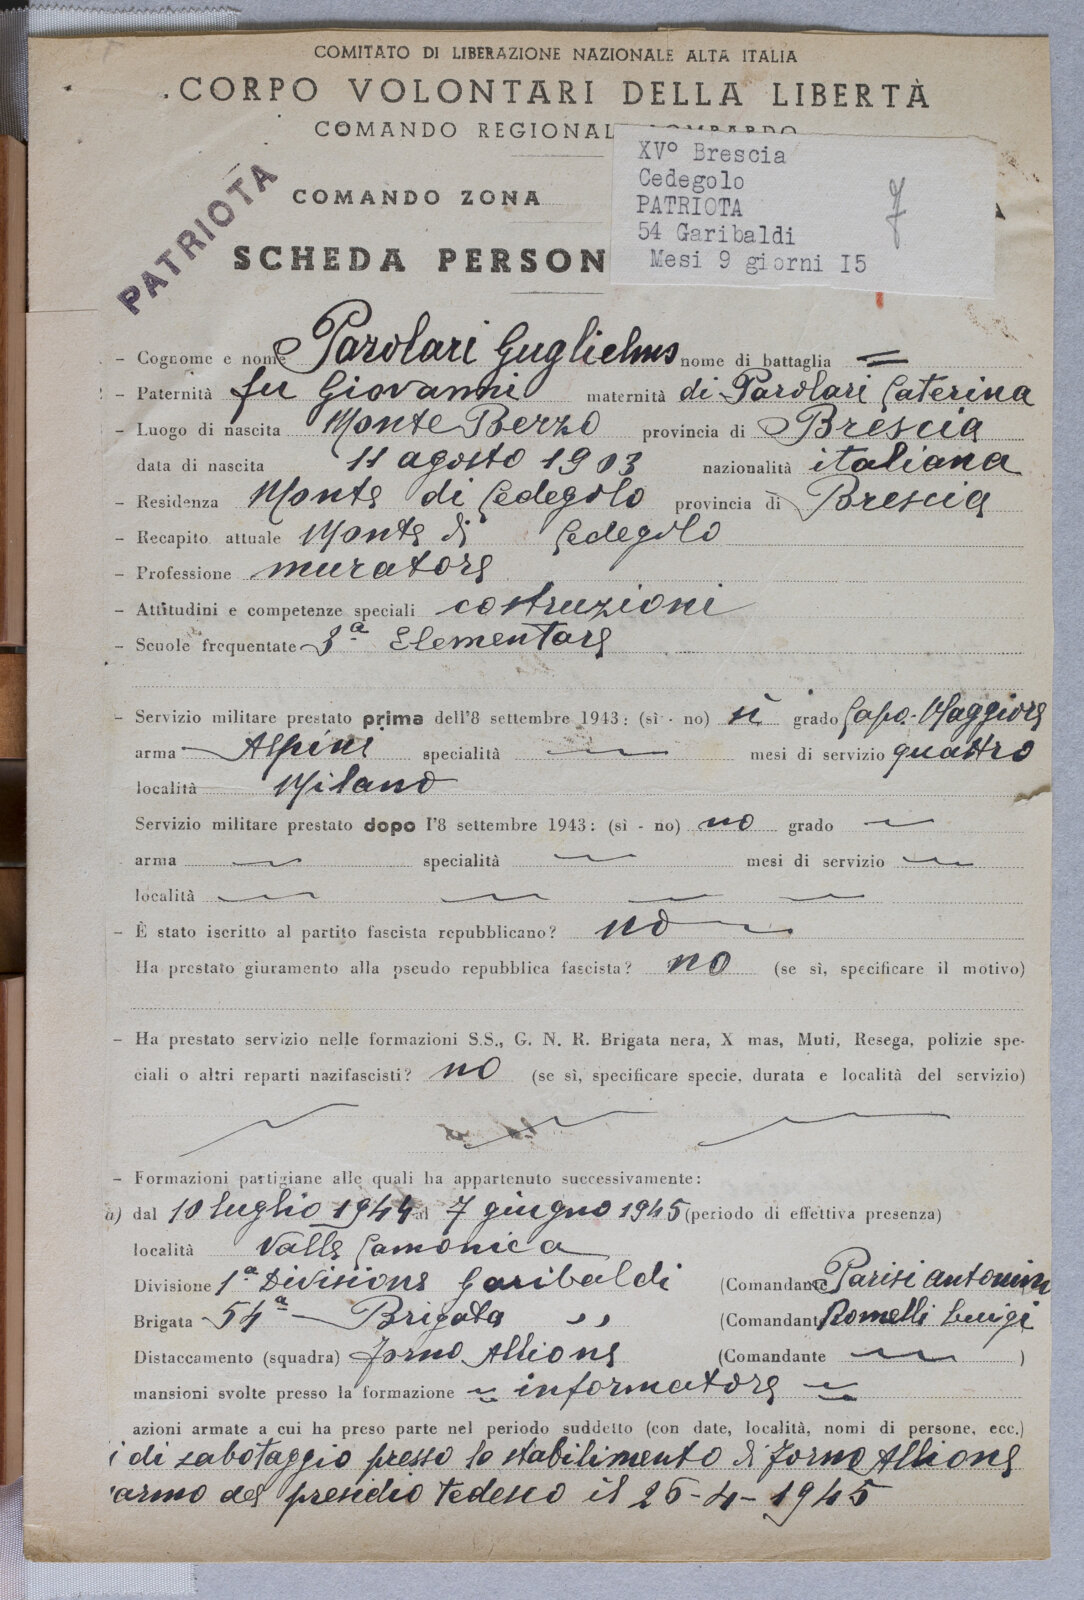 COMITATO DI LIBERAZIONE NAZIONALE ALTA ITALIA
CORPO VOLONTARI DELLA LIBERTÀ
COMANDO REGIONALE LOMBARDO
XVº Brescia
Cedegolo
PATRIOTA
54 Garibaldi
Mesi 9 giorni I5
7
COMANDO ZONA
PATRIOTA
SCHEDA PERSON
– Cognome e nome Parolari Guglielmo nome di battaglia =
– Paternità fu Giovanni maternità di Parolari Caterina
– Luogo di nascita Monte Berzo provincia di Brescia
data di nascita 11 agosto 1903 nazionalità italiana
– Residenza Monte di Cedegolo provincia di Brescia
– Recapito attuale Monte di Cedegolo
– Professione muratore
– Attitudini e competenze speciali costruzioni
– Scuole frequentate 3ª Elementare
– Servizio militare prestato prima dell'8 settembre 1943: (sì - no) sì grado Capo-Maggiore
arma Alpini specialità mesi di servizio quattro
località Milano
Servizio militare prestato dopo l'8 settembre 1943: (sì - no) no grado
arma specialità mesi di servizio
località
– È stato iscritto al partito fascista repubblicano? no
Ha prestato giuramento alla pseudo repubblica fascista? no (se sì, specificare il motivo)
– Ha prestato servizio nelle formazioni S.S., G. N. R. Brigata nera, X mas, Muti, Resega, polizie spe-
ciali o altri reparti nazifascisti? no (se sì, specificare specie, durata e località del servizio)
– Formazioni partigiane alle quali ha appartenuto successivamente:
a) dal 10 luglio 1944 al 7 giugno 1945 (periodo di effettiva presenza)
località Valle Camonica
Divisione 1ª Divisione Garibaldi (Comandante Parisi Antonino
Brigata 54ª Brigata ,, (Comandante Romelli Luigi
Distaccamento (squadra) Forno Allione (Comandante )
mansioni svolte presso la formazione informatore
azioni armate a cui ha preso parte nel periodo suddetto (con date, località, nomi di persone, ecc.)
i di sabotaggio presso lo stabilimento di Forno Allione
armo del presidio tedesco il 26-4-1945